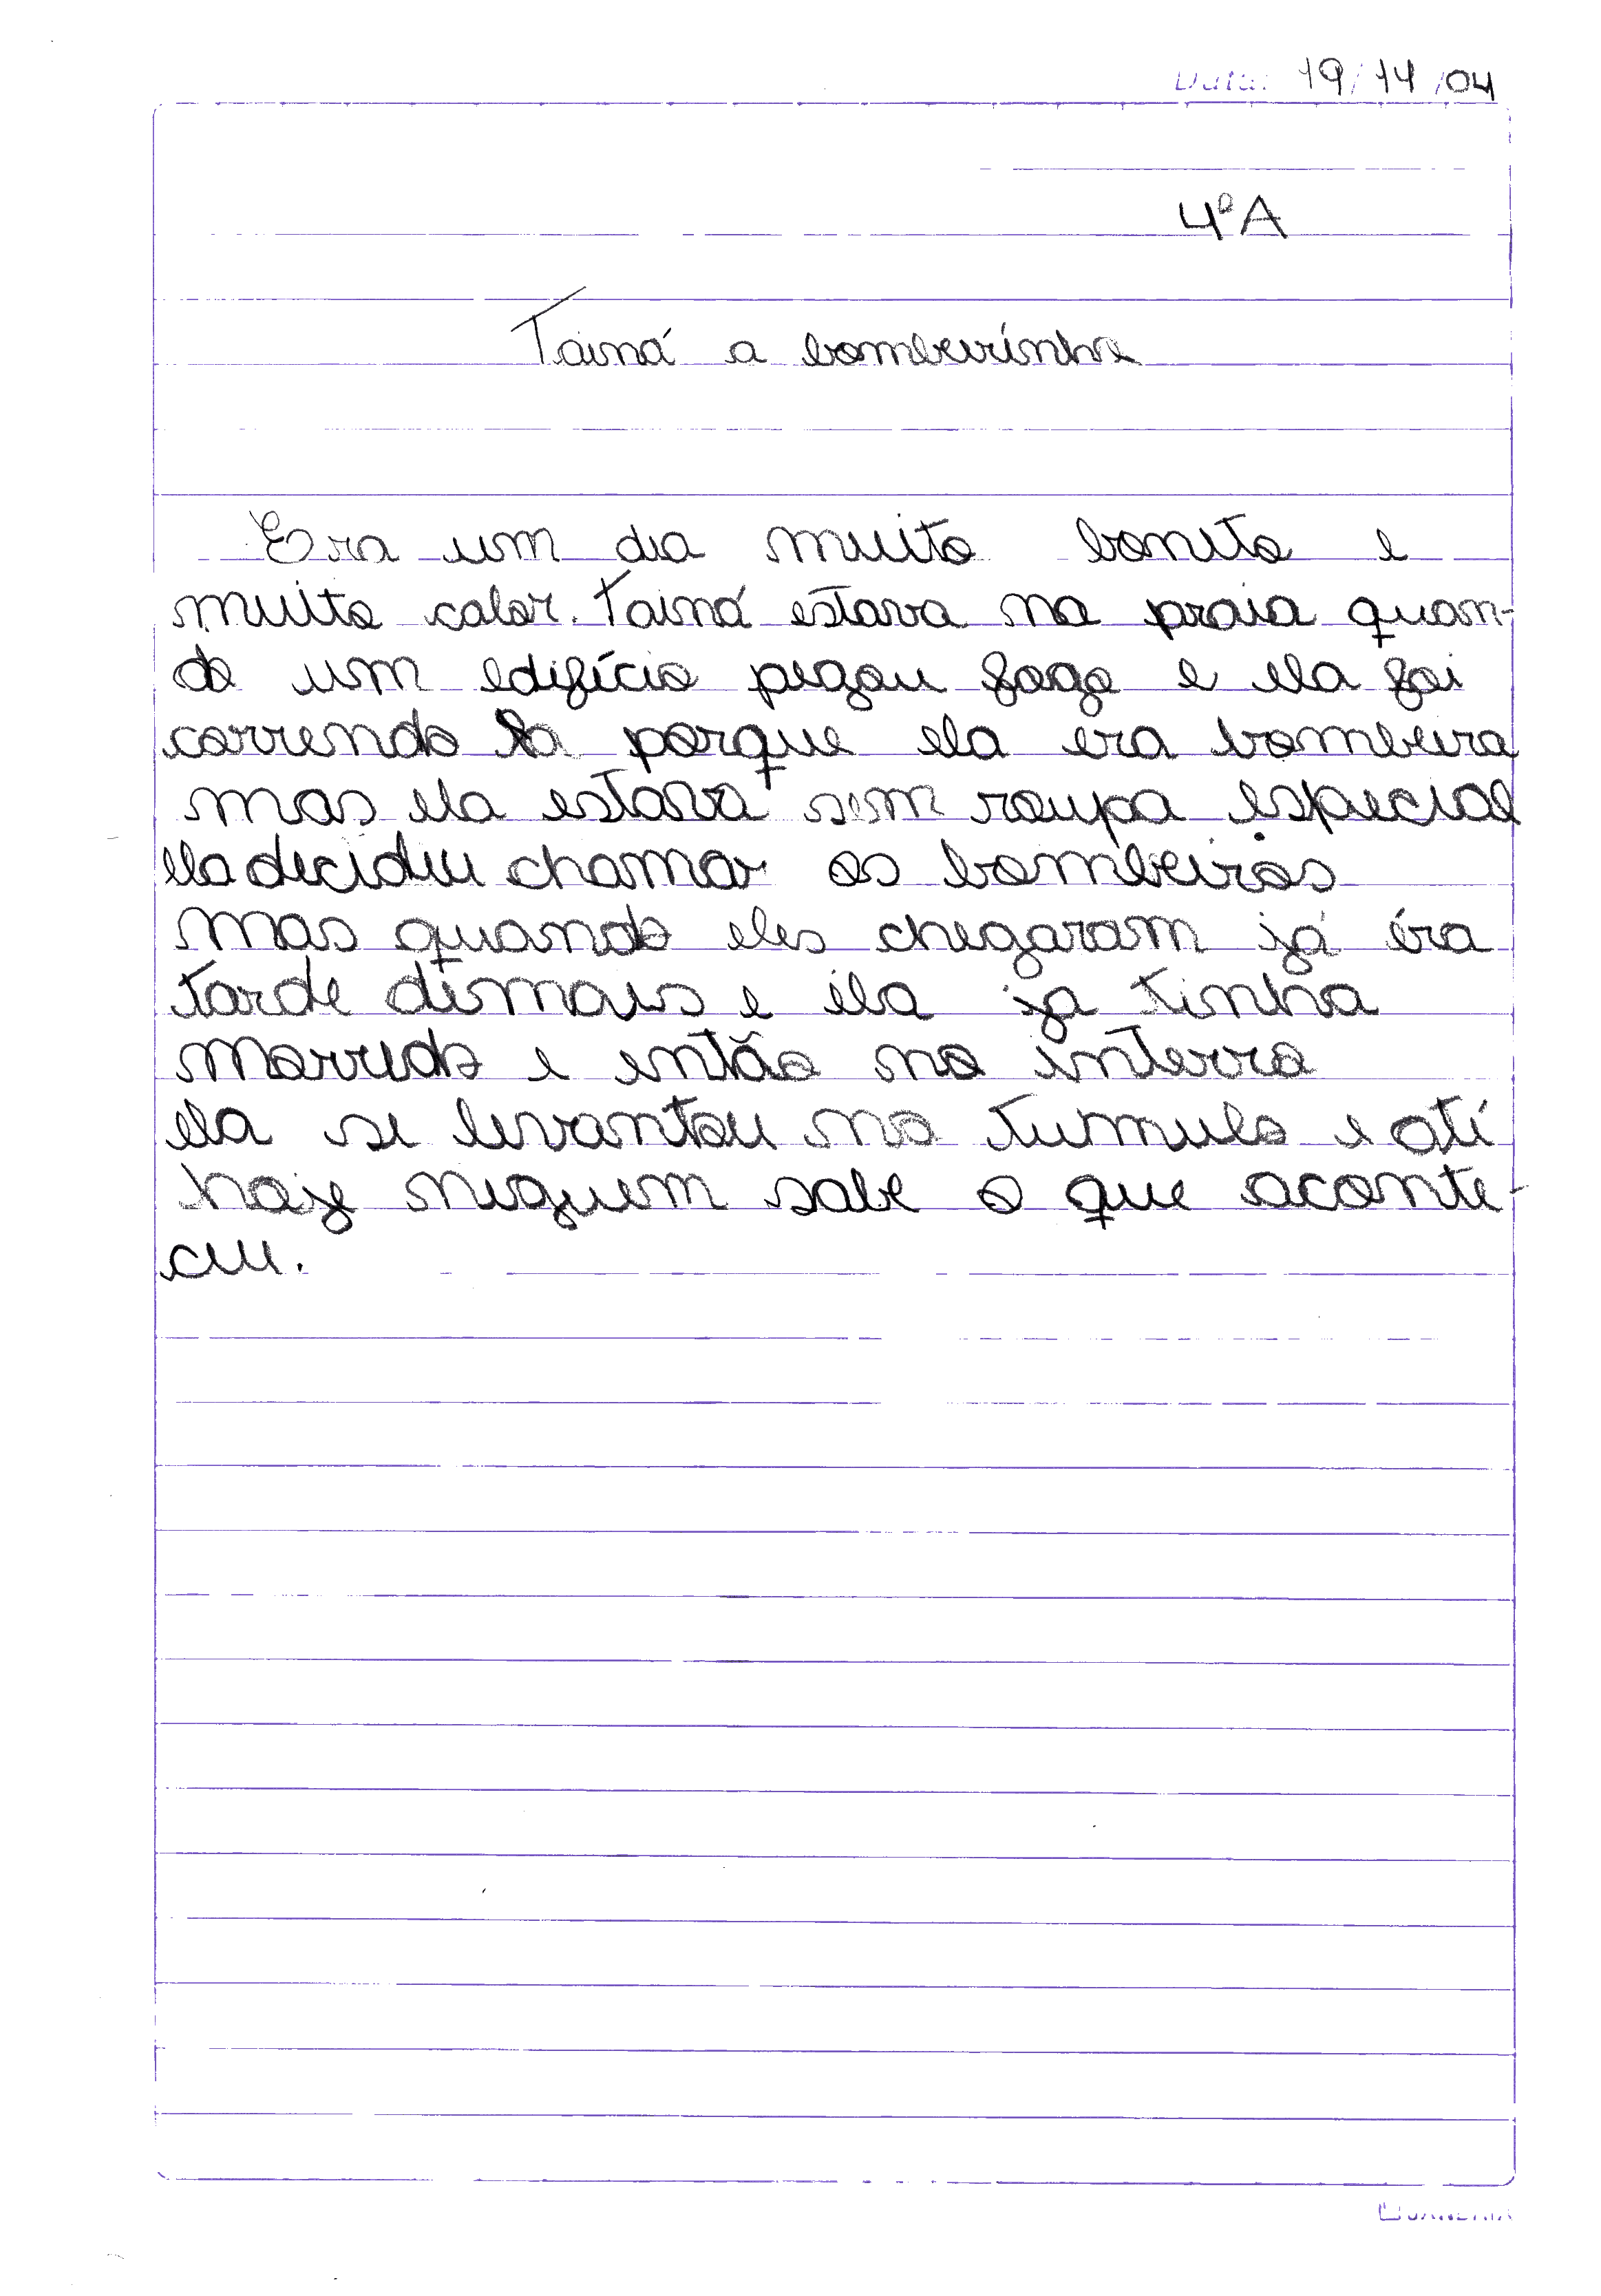 Data: 19/11/04
4ºA
Tainá a bombeirinha
Era um dia muito bonito e
muito calor. Tainá estava na praia quan-
do um edifício pegou fogo e ela foi
correndo la porque ela era bombeira
mas ela estava sem roupa especial
ela decidiu chamar os bombeiros
mas quando eles chegaram já éra
tarde demais e éla ja tinha
morrido e então no interro
ela se levantou no tumulo e até
hoje niguem sabe o que aconte-
ceu.